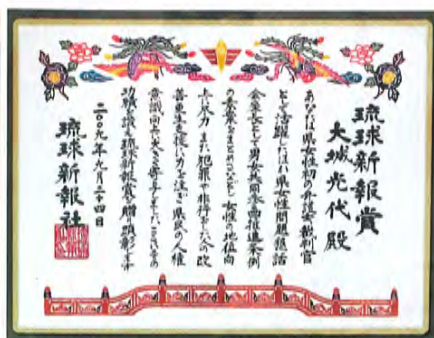 琉球新報賞
大城光代殿
あなたは県女性初の弁護士・裁判官
として活躍したほか県女性問題懇話
会座長として男女共同参画推進条例
の素案をまとめるなど女性の地位向
上に尽力また犯罪や非行をした人の改
善更生支援に力を注ぎ県民の人権
意識向上に大きく寄与しました
功績を讃え琉球新報賞を贈り顕彰します
二〇〇九年九月二十四日
琉球新報社